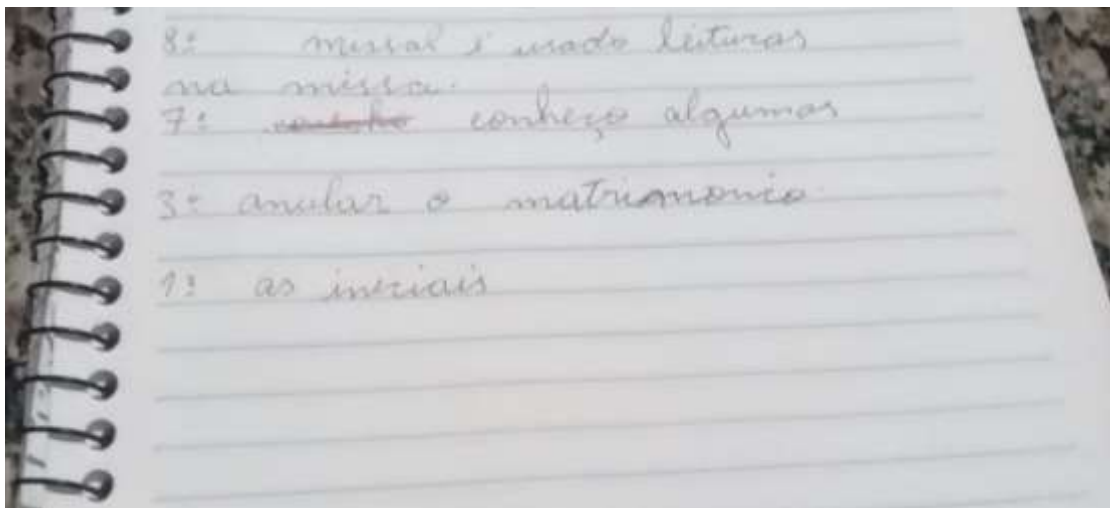 8: missal é usado leituras
na missa.
7: conheço algumas
3: anular o matrimonio.
1: as iniciais